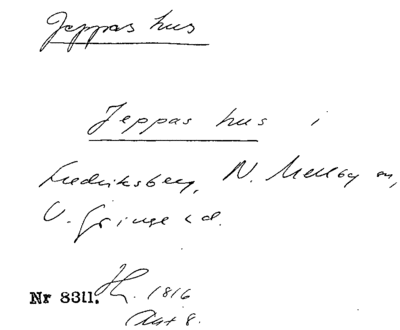 Jeppas hus
Jeppas hus i
Fredriksberg, N. Mellby sn,
V. Göinge hd.
Nr 8311. H. 1816
Akt 8.